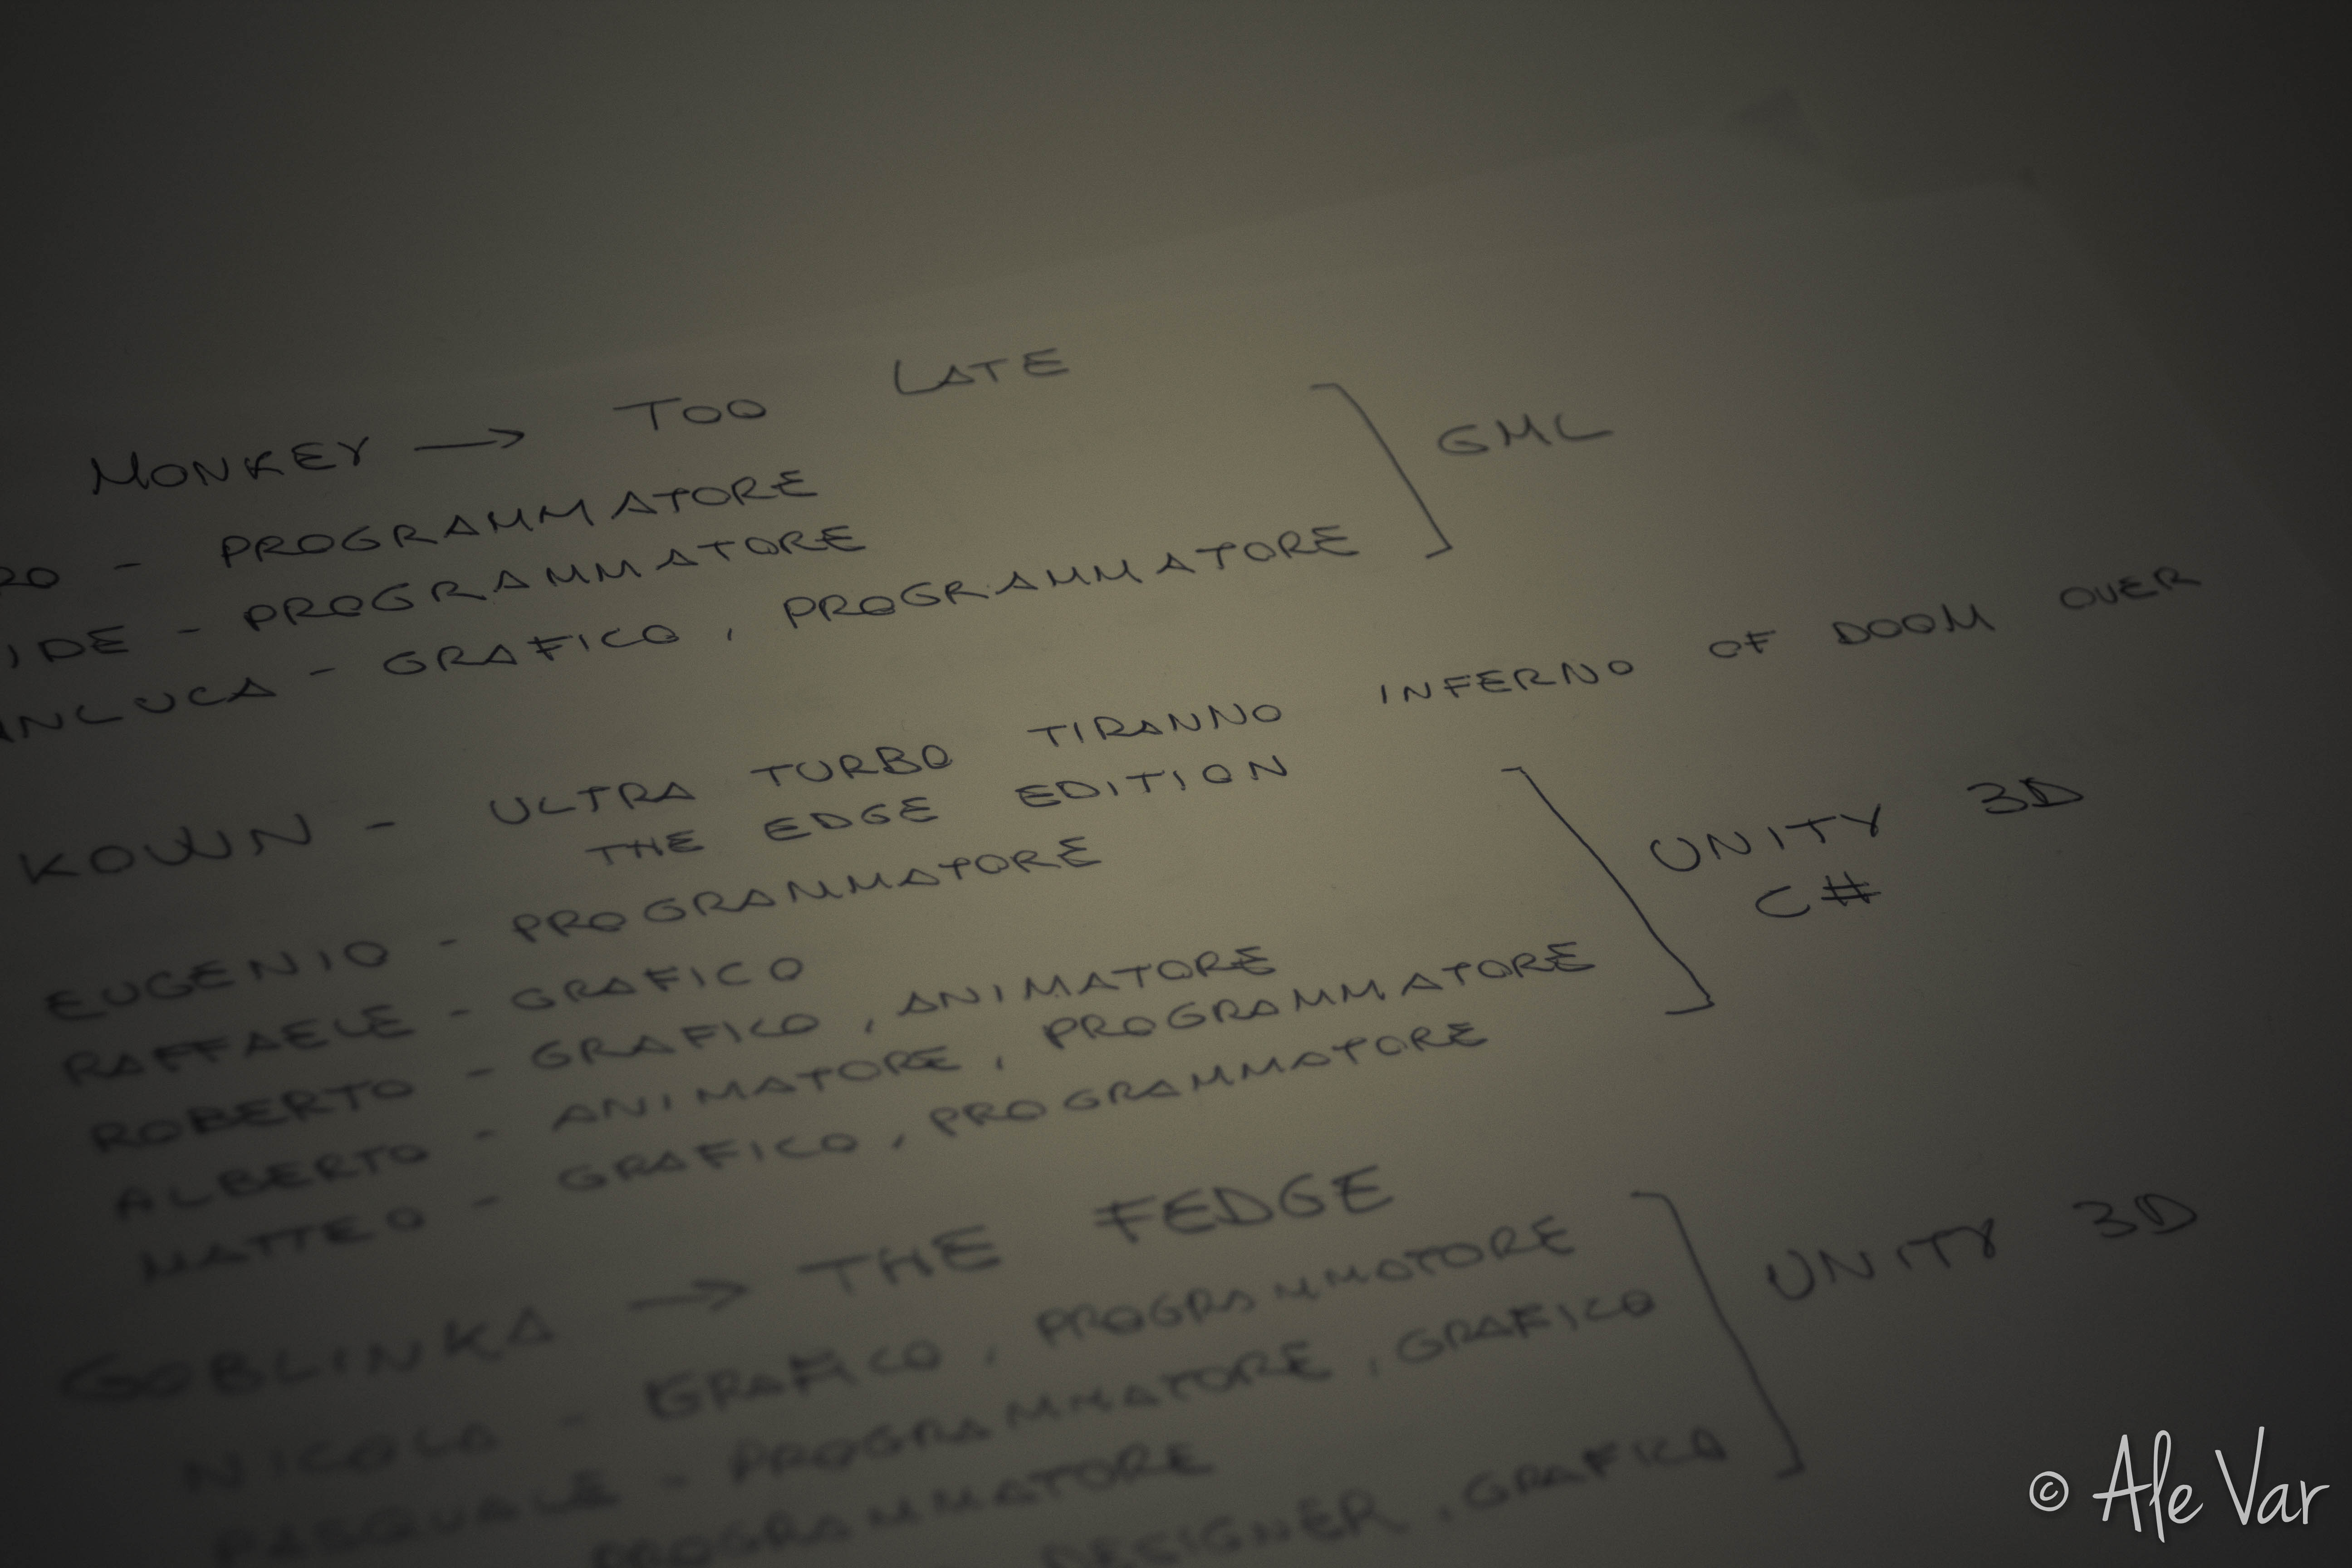 MONKEY → TOO LATE
RO - PROGRAMMATORE
IDE - PROGRAMMATORE
ANLUCA - GRAFICO, PROGRAMMATORE
GML
KOWN - ULTRA TURBO TIRANNO INFERNO OF DOOM OVER
THE EDGE EDITION
EUGENIO - PROGRAMMATORE
RAFFAELE - GRAFICO
ROBERTO - GRAFICO, ANIMATORE
ALBERTO - ANIMATORE, PROGRAMMATORE
MATTEO - GRAFICO, PROGRAMMATORE
UNITY 3D
C#
GOBLINKA → THE FEDGE
NICOLA - GRAFICO, PROGRAMMATORE
PASQUALE - PROGRAMMATORE, GRAFICO
PROGRAMMATORE
DESIGNER, GRAFICA
UNITY 3D
© Ale Var